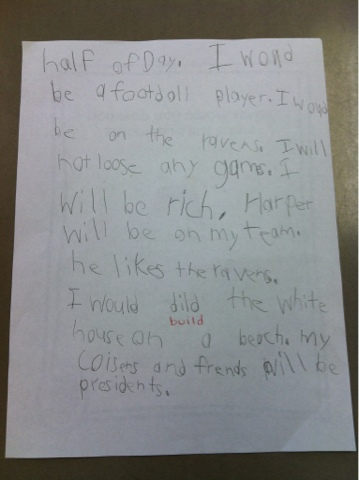 half of Day. I woud
be a footdall player. I woud
be on the ravens. I will
not loose any games. I
will be rich, Harper
will be on my team.
he likes the ravens.
I would dild the white
build
house on a beach. my
Coisets and frends will be
presidents.